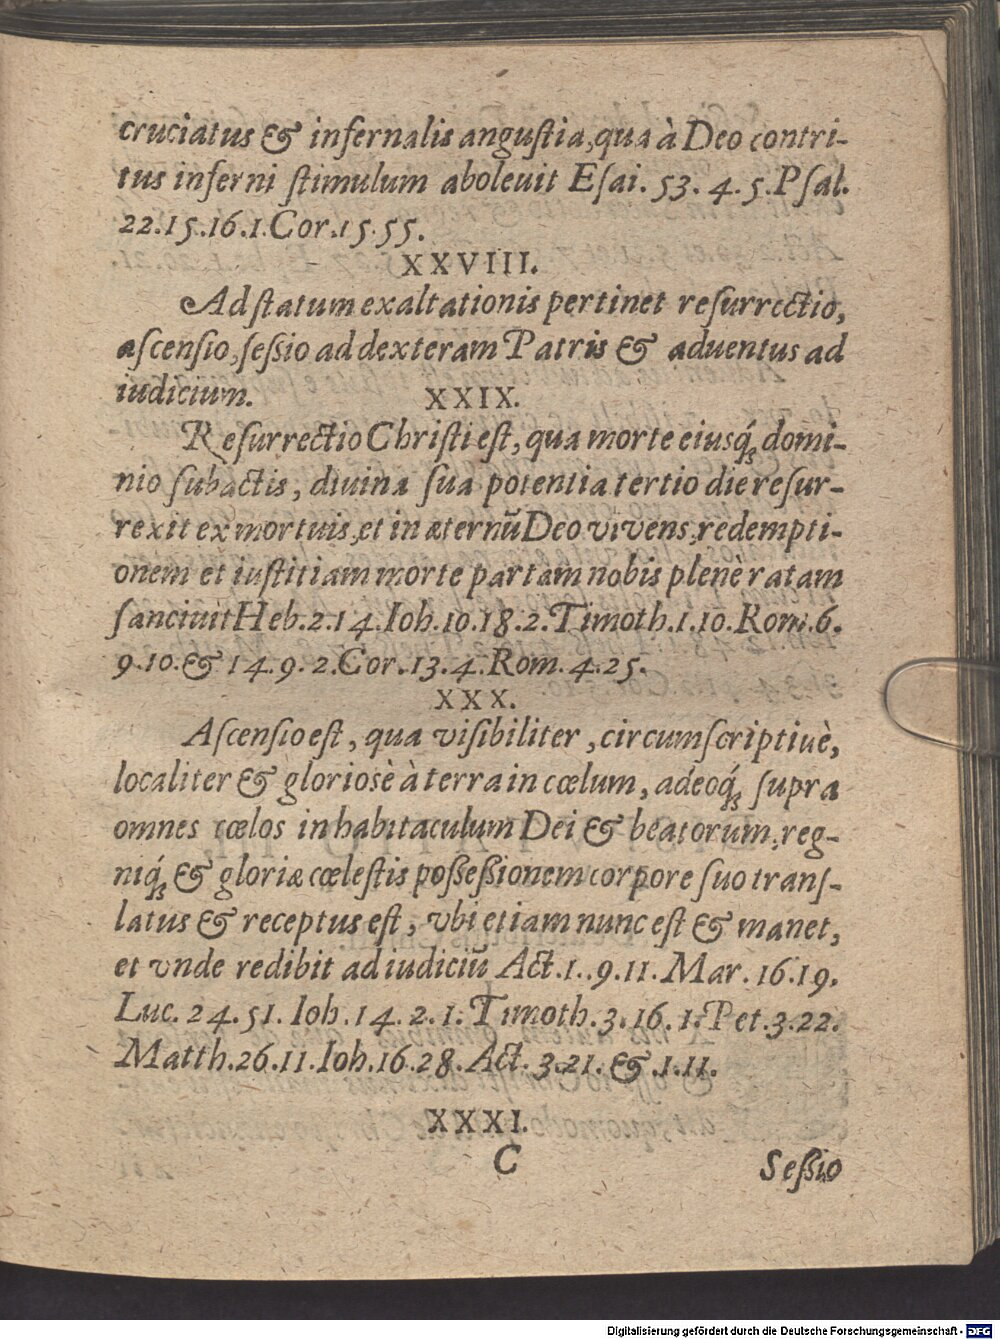 cruciatus & infernalis anguſtia, qua à Deo contri-
tus inferni ſtimulum aboleuit Eſai. 53. 4. 5. Pſal.
22. 15. 16. 1. Cor. 15. 55.
XXVIII.
Ad ſtatum exaltationis pertinet reſurrectio,
aſcenſio, ſeßio ad dexteram Patris & aduentus ad
iudicium.
XXIX.
Reſurrectio Chriſti eſt, qua morte eiusq́ꝫ domi-
nio ſubactis, diuina ſua potentia tertio die reſur-
rexit ex mortuis, et in æternũ Deo vivens, redempti-
onem et iuſtitiam morte partam nobis plenè ratam
ſanciuit Heb. 2. 14. Ioh. 10. 18. 2. Timoth. 1. 10. Rom. 6.
9. 10. & 14. 9. 2. Cor. 13. 4. Rom. 4. 25.
XXX.
Aſcenſio eſt, qua viſibiliter, circumſcriptiuè,
localiter & glorioſè à terra in cœlum, adeoq́ꝫ ſupra
omnes cœlos in habitaculum Dei & beatorum, reg-
niq́ꝫ & gloriæ cœleſtis poßeßionem corpore ſuo tranſ-
latus & receptus eſt, vbi etiam nunc eſt & manet,
et vnde redibit ad iudiciũ Act. 1. 9. 11. Mar. 16. 19.
Luc. 24. 51. Ioh. 14. 2. 1. Timoth. 3. 16. 1. Pet. 3. 22.
Matth. 26. 11. Ioh. 16. 28. Act. 3. 21. & 1. 11.
XXXI.
C
Seßio
Digitalisierung gefördert durch die Deutsche Forschungsgemeinschaft - DFG